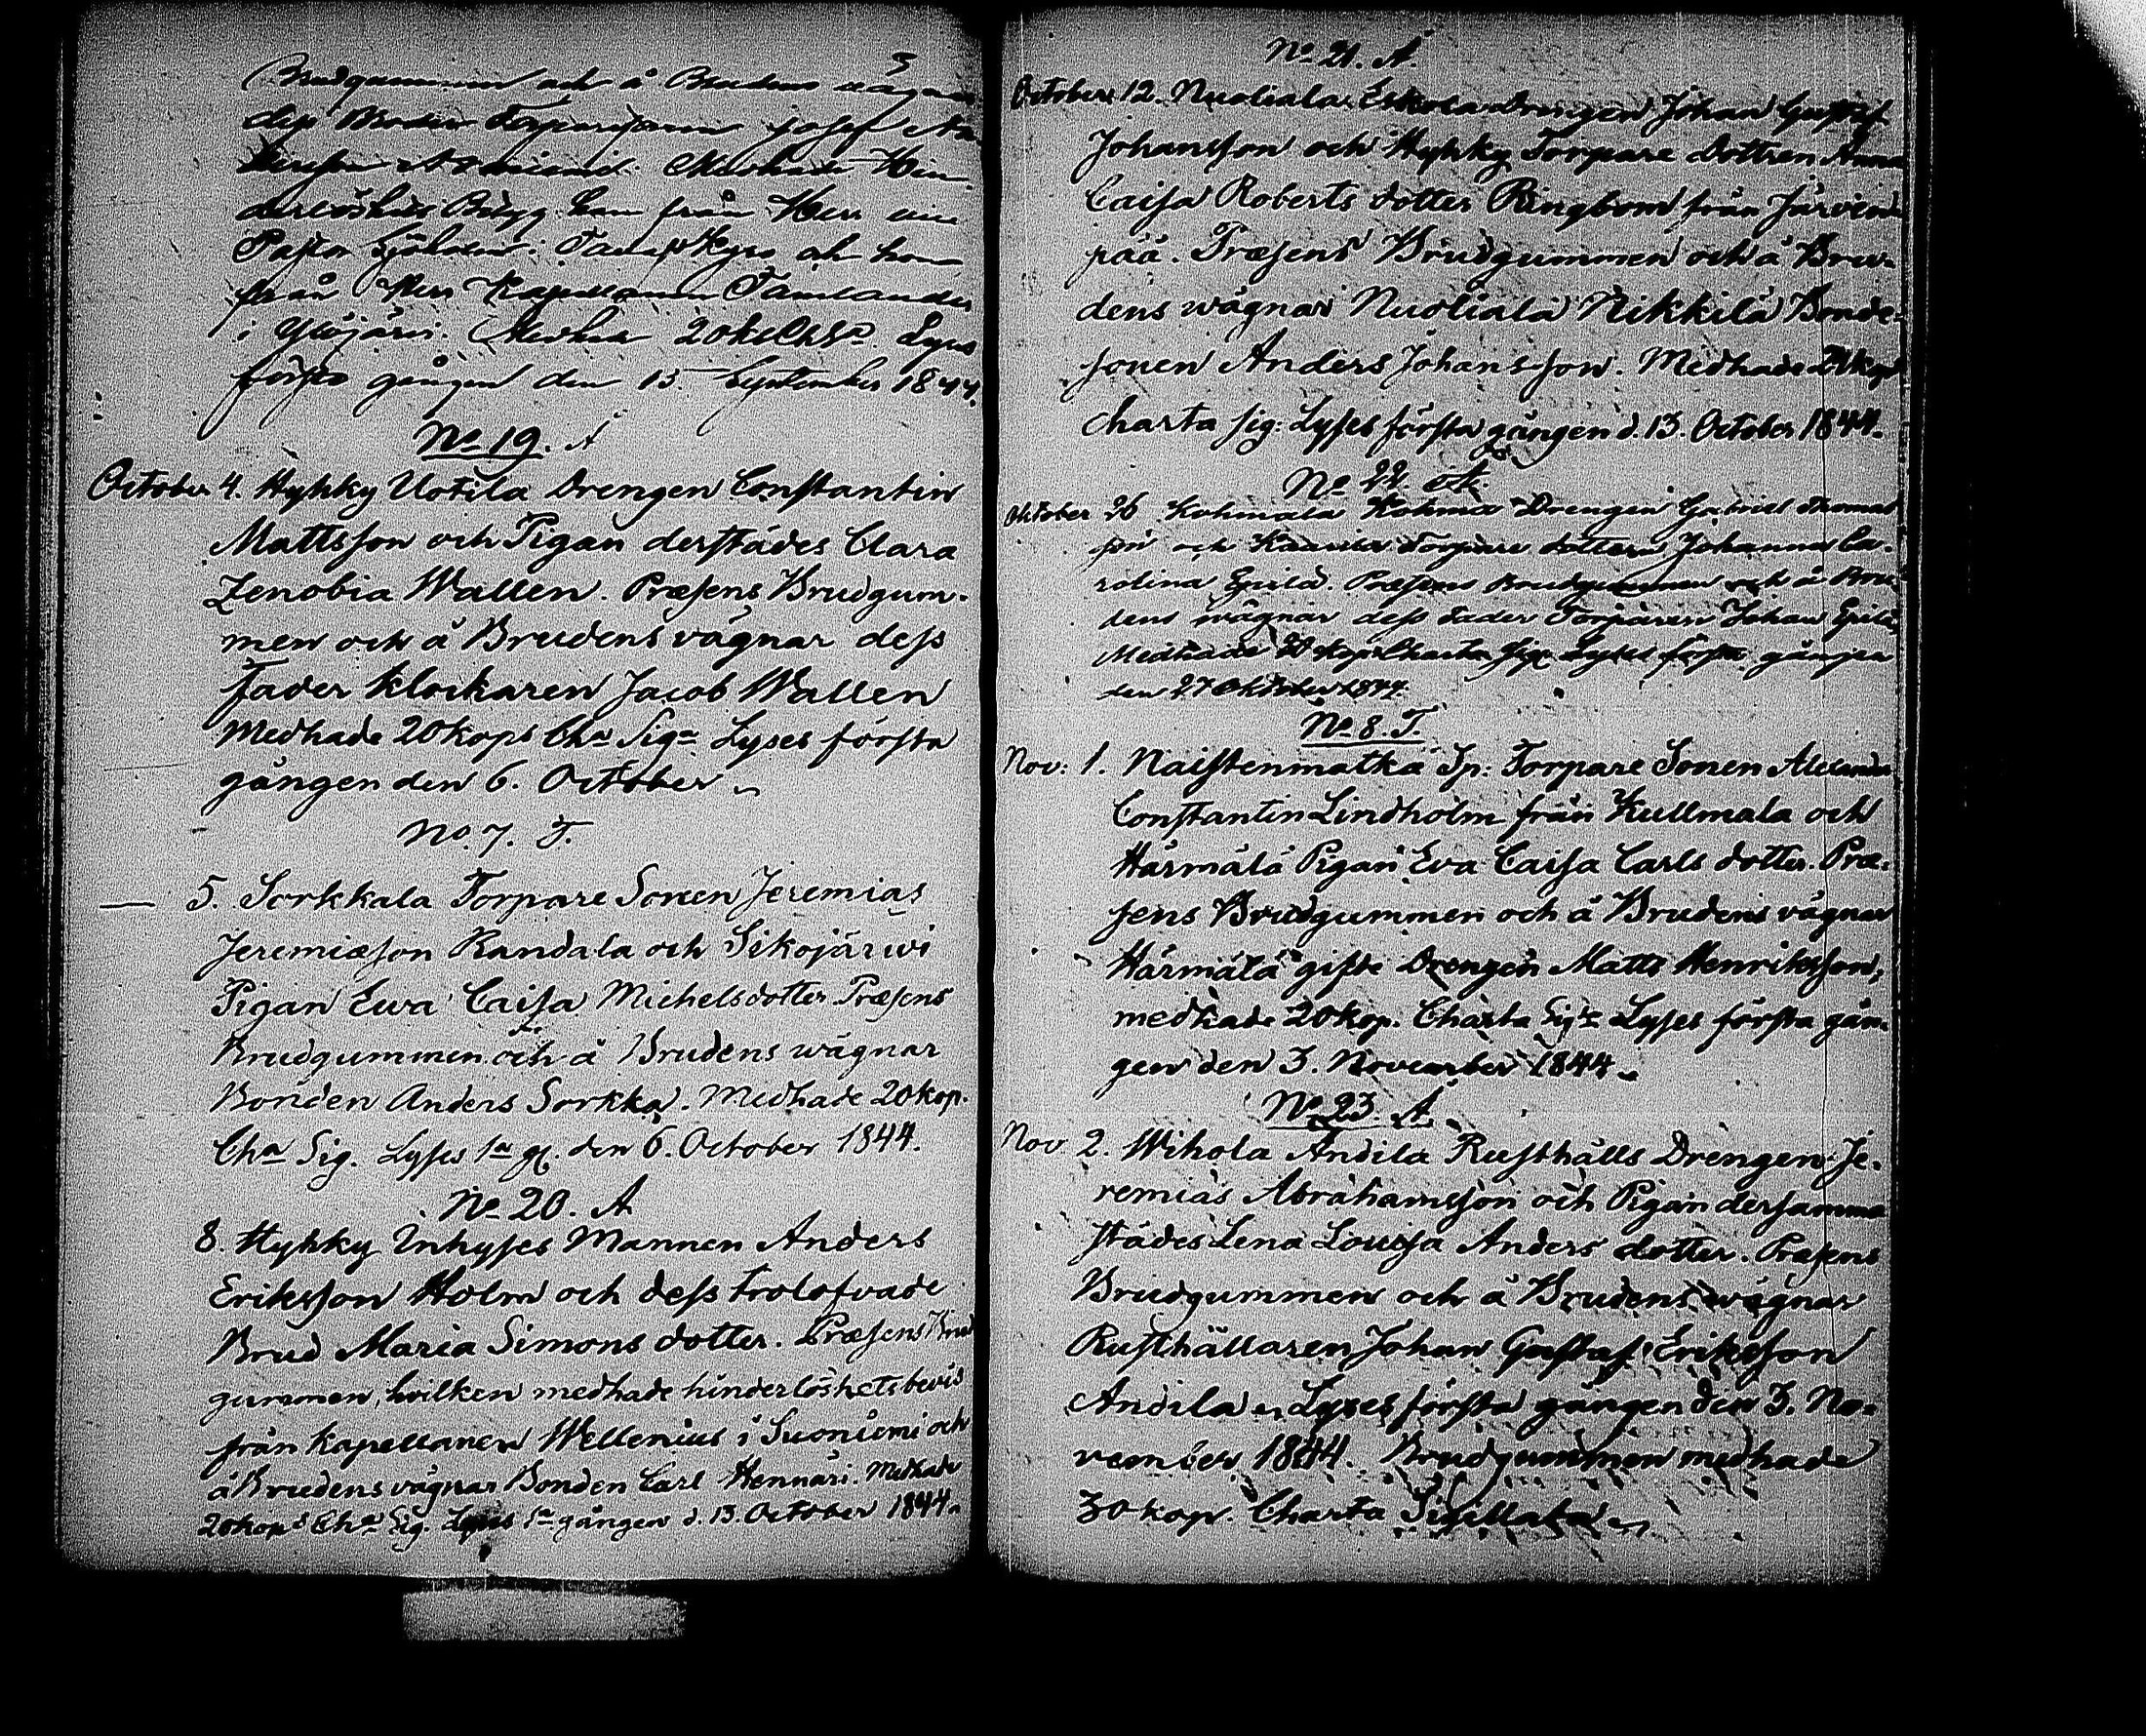 Brudgummen och å Brudens vägnar
dess Broder Torparesonen Josef An
dersson Medhade Hin
derlöshets Betyg han från Herr vice
Pastor och hon
från Herr Kapellanen Tamlander
i Ylöjärvi. Medhade 20 k Cha Sa. Lyses
första gången den 15 September 1844.
No 19. A
October 4. Hyhky Uotila Drengen Constantin
Mattsson och Pigan derstädes Clara
Zenobia Wallen. Præsens Brudgum-
men och å Brudens vägnar dess
Fader Klockaren Jacob Wallen
Medhade 20 kops Cha Siga Lyses första
gången den 6. October
No. 7. T.
— 5. Sorkkala Torpare Sonen Jeremias
Jeremiæson Randala och Sikojärwi
Pigan Ewa Caisa Michelsdotter Præsens
Brudgummen och å Brudens wägnar
Bonden Anders Sorkka. Medhade 20 kop.
Cha Sig. Lyses 1a gg. den 6. October 1844.
No 20. A
8. Hyhky Inhyses Mannen Anders
Eriksson Holm och dess trolofvade
Brud Maria Simons dotter. Præsens Brud
gummen, hvilken medhade hinderlöshetsbevis
från Kapellanen Wellenius i Suoniemi och
å Brudens vägnar Bonden Carl Hennäri. Medhade
20 kops Cha Sig. Lyses 1a gången d. 13 October 1844.
No 21. A.
October 12. Nuoliala Eskola Drengen Johan Gustaf
Johansson och Hyhky Torpare Dottren Anna
Caisa Roberts dotter Ringbom från Järven
pää. Præsens Brudgummen och å Bru-
dens wägnar Nuoliala Nikkilä Bonde-
sonen Anders Johansson. Medhade 20 kops
charta sig: Lyses första gången d. 13. October 1844.
No 22. A.
Oktober 26 Kuhmala Kohma Drengen Gabriel Thomas
son och Torpare dottern Johanna Ca-
rolina Præsens Brudgummen och å Bru-
dens wägnar dess Fader Torparen Johan
Medhade 20 kops Charta Sig: Lyses första gången
den 27 Oktober 1844.
No 8. T.
Nov: 1. Naistenmatka Sp: Torpare Sonen Alexander
Constantin Lindholm från Kullmala och
Härmälä Pigan Eva Caisa Carls dotter. Præ-
sens Brudgummen och å Brudens vägnar
Härmälä gifte Drengen Matts Henriksson,
medhade 20 kop. Charta Siga Lyses första gån-
gen den 3. November 1844
No 23. A.
Nov 2. Wihola Andila Rusthålls Drengen Je-
remias Abrahamsson och Pigan dersamma
städes Lena Lovisa Anders dotter. Præsens
Brudgummen och å Brudens wägnar
Rusthållaren Johan Gustaf Eriksson
Andila Lyses första gången den 3. No-
vember 1844. Brudgummen medhade
30 kop. Charta Sigillata